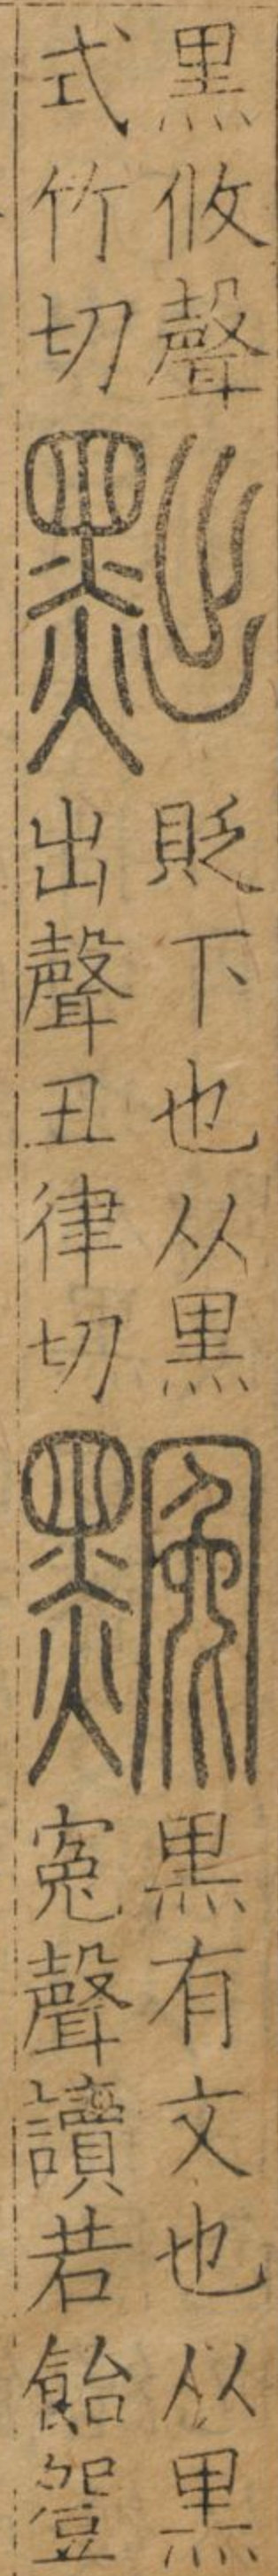 黑攸聲
式竹切
黜
貶下也从黑
出聲丑律切
黑有文也从黑
冤聲讀若飴𧯡